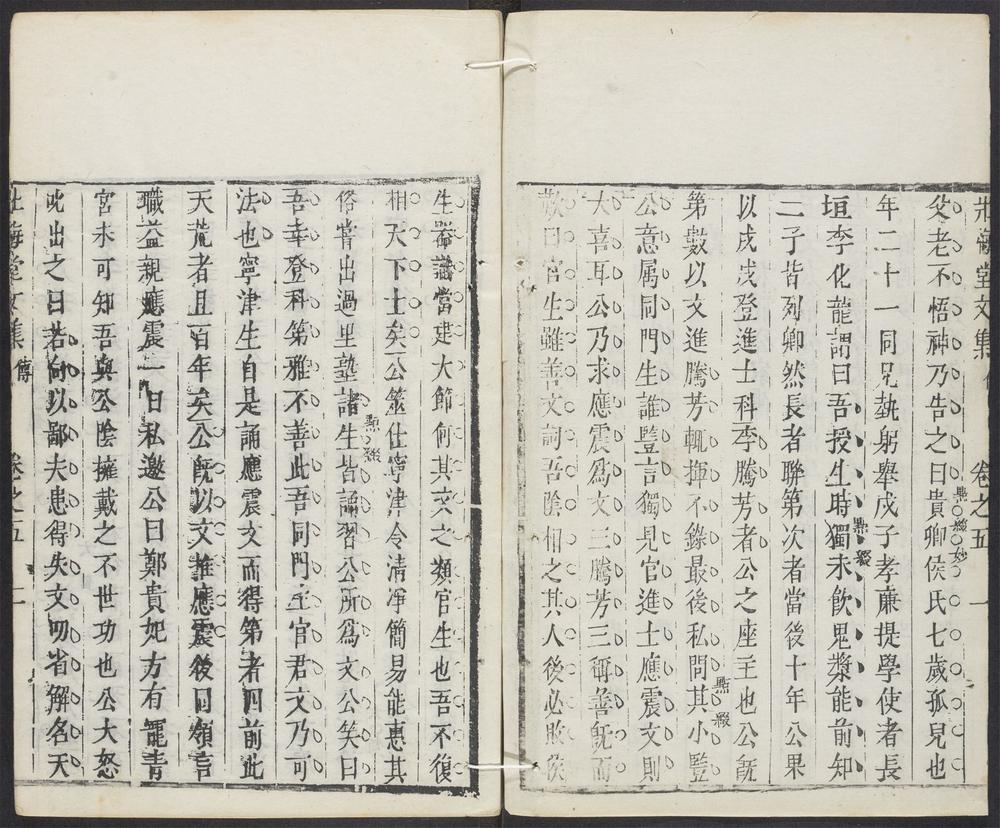 壯悔堂文集 卷之五 一
父老不悟神乃告之曰貴卿侯氏七歲孤兒也
點綴妙
年二十一同兄執躬舉戊子孝亷提學使者長
垣李化龍謂曰吾授生時獨未飲鬼漿能前知
點綴
二子皆列卿然長者聯第次者當後十年公果
以戊戌登進士科李騰芳者公之座主也公旣
第數以文進騰芳輒揮不錄最後私問其小豎
點綴
公意属同門生誰豎言獨見官進士應震文則
大喜耳公乃求應震爲文三騰芳三稱善旣而
歎曰官生雖善文詞吾陰相之其人後必敗侯
生器識當建大節何其文之類官生也吾不復
相天下士矣公筮仕寧津令清凈簡易能惠其
俗嘗出過里塾諸生皆誦習公所爲文公笑曰
點綴
吾幸登科第雅不善此吾同門生官君文乃可
法也寧津生自是誦應震文而得第者四前此
天荒者且百年矣公旣以文推應震後同領言
職益親應震一日私邀公曰鄭貴妃方有寵青
宮未可知吾與公陰擁戴之不世功也公大怒
叱出之曰若向以鄙夫患得失文吻省解名天
壯悔堂文集 傳 卷之五 二